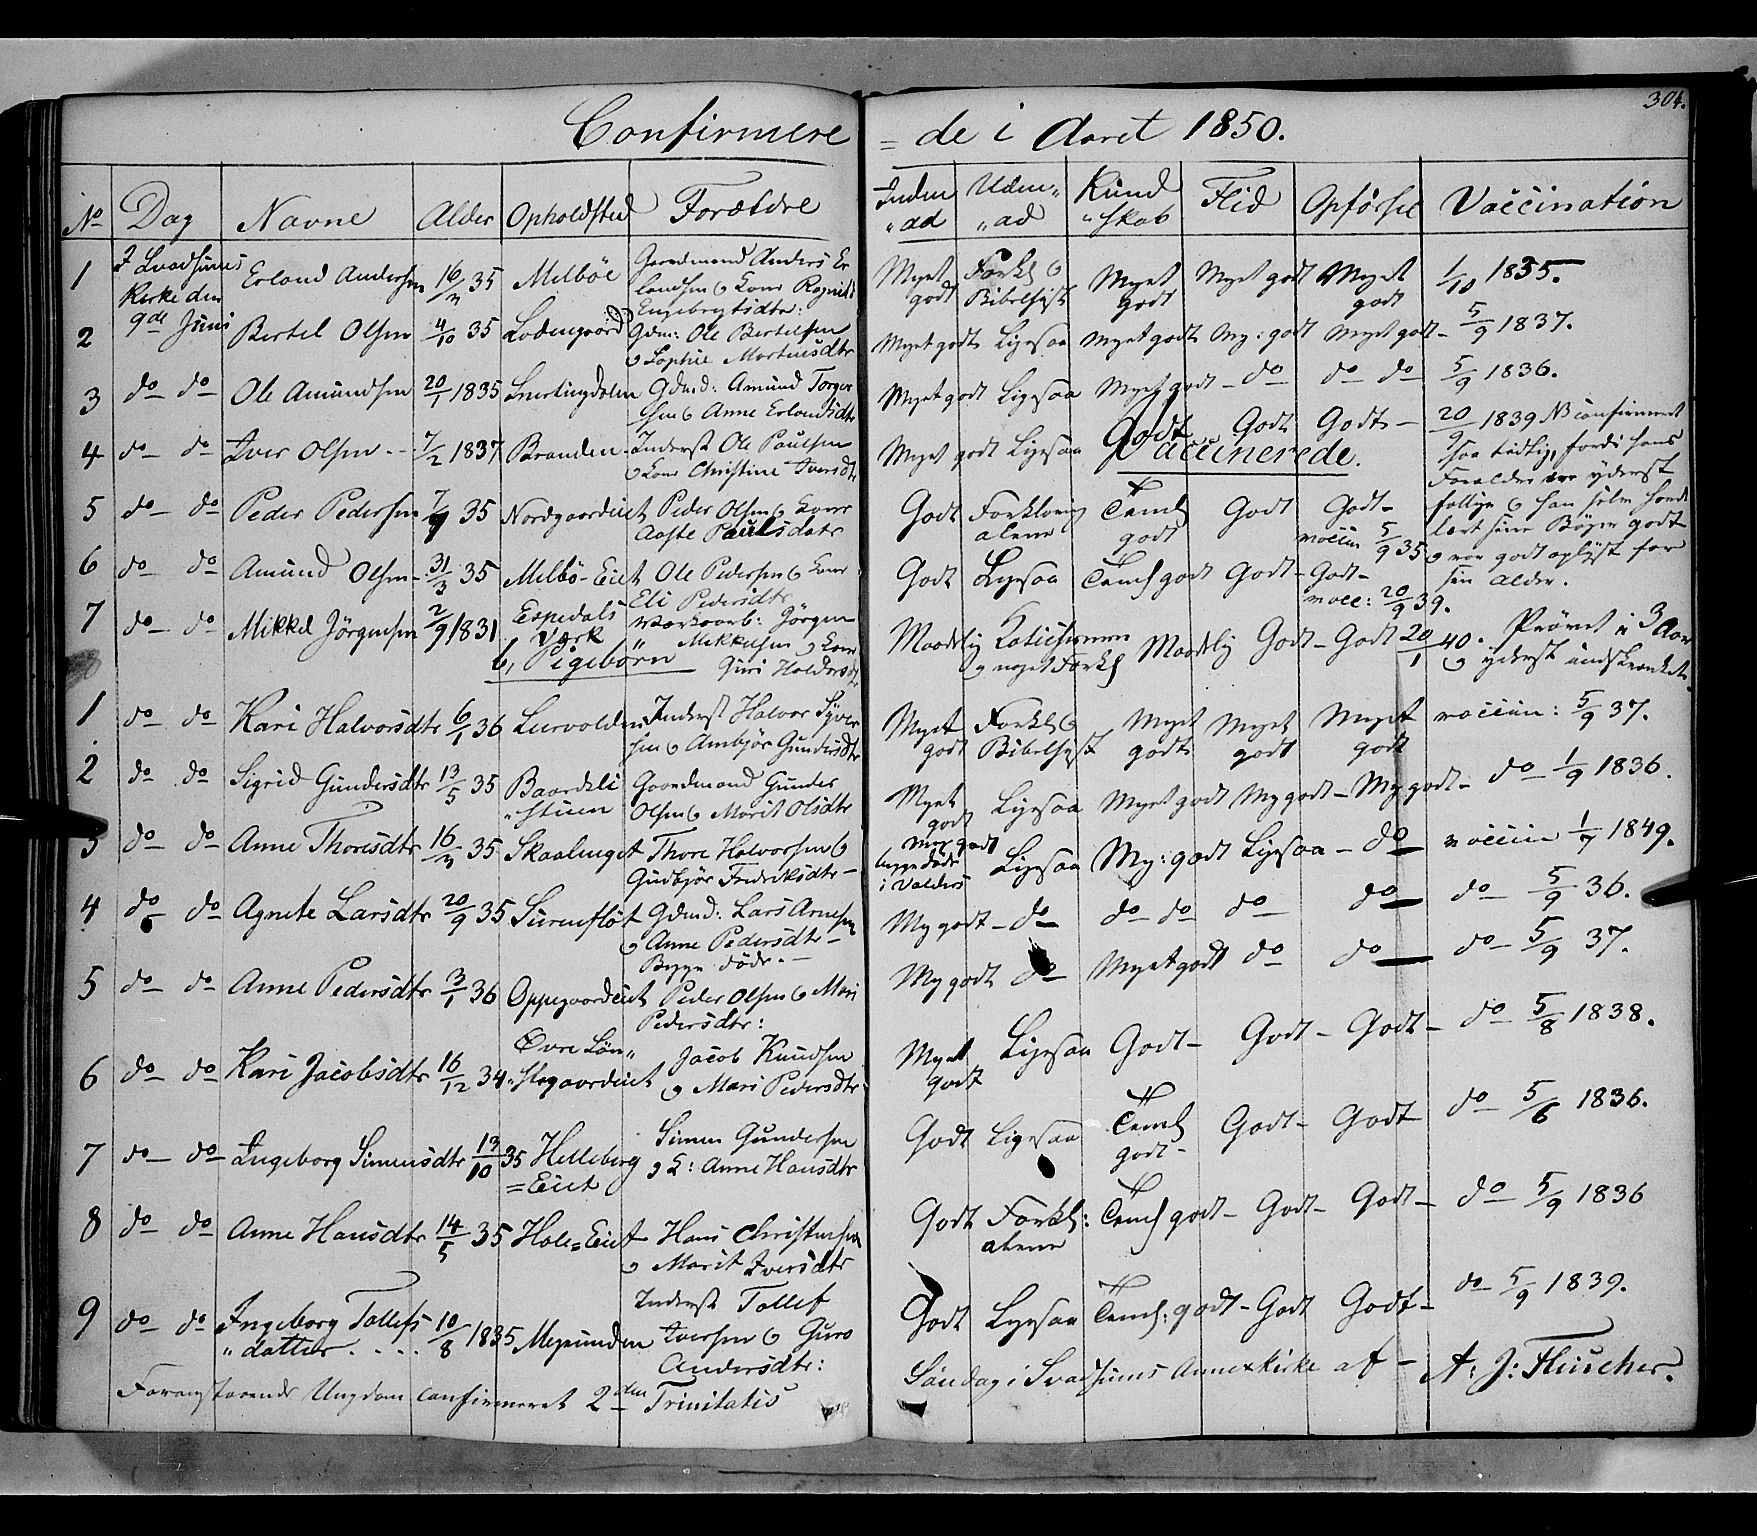 304.
Confirmere = de i Aaret 1850.
No Dag Navne Alder Opholdsted Forældre Inden „ad Uden„ „ad Kund „skab Flid Opførsel Vaccination
1 I Svadsums Kirke den 9de Juni Erland Andersen 16/ 35 Melböe Gaardmand Anders Er
landsen og Kone Ragnild
Engebregtsdtr: Myet godt Forkl. og Bibelhist. Myet godt Myet godt Myet godt 1/10 1835.
2 Bertel Olsen 4/10 35 Lodengaard Gdm: Ole Bertelsen
og Sophie Mortensdtr Myet godt Ligesaa Myet godt My: godt Myet godt – 5/9 1837.
3 do do Ole Amundsen 20/1 1835 Snertingdalen Gdmd: Amund Torger
sen og Anne Erlandsdtr Myet godt Ligesaa Myet godt – do do do 5/9 1836.
4 do do Iver Olsen -- 7/2 1837 Branden – Inderst Ole Paulsen
og Kone Christine Iversdtr Myet godt Ligesaa Godt Godt Godt – 20/9 1839 NB confirmeret
saa tidlig, fordi hans
Forældre ere yderst
fattige og han selv havde
lært sine Bøger godt
og var godt oplyst for
sin Alder.
Vaccinerede.
5 do do Peder Pedersen 7/9 35 Nordgaardeiet Peder Olsen og Kone
Aaste Paulsdatr Godt Forklaring alene Teml godt Godt Godt –
vaccin 5/9 35
6 do do Amund Olsen – 31/3 35 Melbö-Eiet Ole Pedersen og Kone
Eli Pedersdtr Godt Ligesaa Teml godt Godt – Godt –
vacc: 20/9 39.
7 do do Mikkel Jörgensen 2/9 1831 Espedals Værk Værksarb: Jörgen
„ Mikkelsen og Kone
Guri Haldorsdtr Maadelig Katechismen og noget Forkl Maadelig Godt – Godt 20/1 40. Prøvet i 3 Aar
og yderst indskrænket.
b, Pigebörn
1 do do Kari Halvorsdtr 6/1 36 Lurvolden Inderst Halvor Syver
sen og Ambjör Gundersdtr Myet godt Forkl. og Bibelhyst Myet godt Myet godt Myet godt vaccin: 5/9 37.
2 do do Sigrid Gundersdtr 13/5 35 Baardsli „stuen Gaardmand Gunder
Olsen og Marit Olsdtr Myet godt Ligesaa Myet godt My godt – My godt – do 1/9 1836.
3 do do Anne Thoresdtr 16/ 35 Skaalenget Thore Halvorsen og
Gudbjör Fredriksdtr – Myg godt begge døde i Valders Ligesaa My: godt Ligesaa – do vaccin 1/7 1849.
4 do do Agnete Larsdtr 20/9 35 Surenflöt Gdmd: Lars Arnesen
og Anne Pedersdtr –
Begge döde. – My godt – do do do do do do 5/9 36.
5 do do Anne Pedersdtr 3/1 36 Oppegaardeiet Peder Olsen og Mari
Pedersdtr: My godt do Myet godt do do do 5/9 37.
6 do do Kari Jacobsdtr 16/12 34 Øvre Løn„ „Skegaardeiet Jacob Knudsen
og Mari Pedersdtr Myet godt Ligesaa Godt – Godt – Godt – do 5/8 1838.
7 do do Ingeborg Simensdtr 13/10 35 Helleberg =Eiet Simen Gundersen
og K: Anne Hansdtr Godt Ligesaa Teml godt – Godt – Godt do 5/6 1836.
8 do do Anne Hansdtr 14/5 35 Hole=Eiet Hans Christensen
og Marit Iversdtr Godt Forkl: alene Teml godt – Godt – Godt – do 5/9 1836
9 do do Ingeborg Tollefs „datter . . . . 10/8 1835 Megrunden Inderst Tollef
Iversen og Guro
Andersdtr: Godt Ligesaa Teml: godt – Godt Godt – do 5/9 1839.
Foranstaaende Ungdom confirmeret 2den Trinitatis Søndag i Svadsums Annexkirke af – A: J: Fluscher.